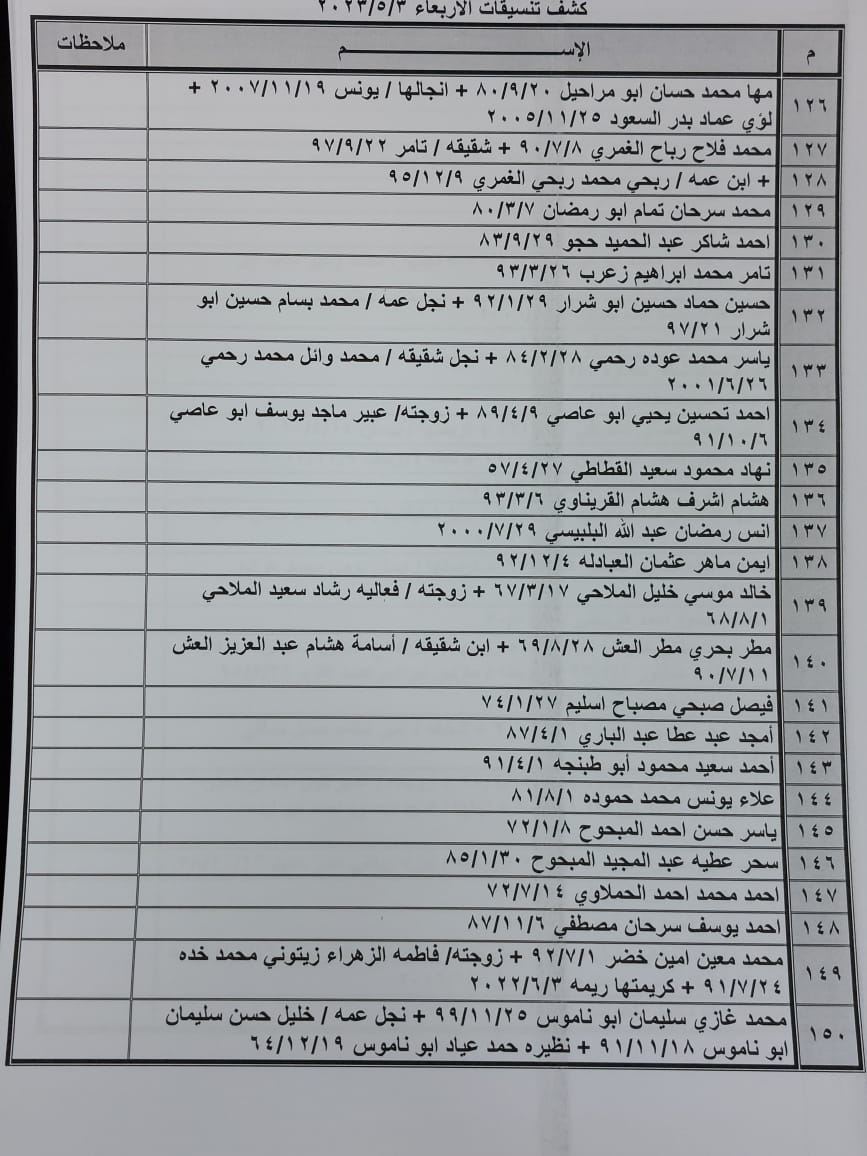 كشف تنسيقات الاربعاء ٢٠٢٣/٥/٣
م الإســـم ملاحظات
١٢٦ مها محمد حسان ابو مراحيل ٨٠/٩/٢٠ + انجالها / يونس ٢٠٠٧/١١/١٩ +
لؤي عماد بدر السعود ٢٠٠٥/١١/٢٥
١٢٧ محمد فلاح رباح الغمري ٩٠/٧/٨ + شقيقه / تامر ٩٧/٩/٢٢
١٢٨ + ابن عمه / ربحي محمد ربحي الغمري ٩٥/١٢/٩
١٢٩ محمد سرحان تمام ابو رمضان ٨٠/٣/٧
١٣٠ احمد شاكر عبد الحميد حجو ٨٣/٩/٢٩
١٣١ تامر محمد ابراهيم زعرب ٩٣/٣/٢٦
١٣٢ حسين حماد حسين ابو شرار ٩٢/١/٢٩ + نجل عمه / محمد بسام حسين ابو
شرار ٩٧/٢١
١٣٣ ياسر محمد عوده رحمي ٨٤/٢/٢٨ + نجل شقيقه / محمد وائل محمد رحمي
٢٠٠١/٦/٢٦
١٣٤ احمد تحسين يحيي ابو عاصي ٨٩/٤/٩ + زوجته/ عبير ماجد يوسف ابو عاصي
٩١/١٠/٦
١٣٥ نهاد محمود سعيد القطاطي ٥٧/٤/٢٧
١٣٦ هشام اشرف هشام القريناوي ٩٣/٣/٦
١٣٧ انس رمضان عبد الله البلبيسي ٢٠٠٠/٧/٢٩
١٣٨ ايمن ماهر عثمان العبادله ٩٢/١٢/٤
١٣٩ خالد موسي خليل الملاحي ٦٧/٣/١٧ + زوجته / فعاليه رشاد سعيد الملاحي
٦٨/٨/١
١٤٠ مطر بحري مطر العش ٦٩/٨/٢٨ + ابن شقيقه / أسامة هشام عبد العزيز العش
٩٠/٧/١١
١٤١ فيصل صبحي مصباح اسليم ٧٤/١/٢٧
١٤٢ أمجد عبد عطا عبد الباري ٨٧/٤/١
١٤٣ أحمد سعيد محمود أبو طبنجه ٩١/٤/١
١٤٤ علاء يونس محمد حموده ٨١/٨/١
١٤٥ ياسر حسن احمد المبحوح ٧٢/١/٨
١٤٦ سحر عطيه عبد المجيد المبحوح ٨٥/١/٣٠
١٤٧ احمد محمد احمد الحملاوي ٧٢/٧/١٤
١٤٨ احمد يوسف سرحان مصطفي ٨٧/١١/٦
١٤٩ محمد معين امين خضر ٩٢/٧/١ + زوجته/ فاطمه الزهراء زيتوني محمد خده
٩١/٧/٢٤ + كريمتها ريمه ٢٠٢٢/٦/٣
١٥٠ محمد غازي سليمان ابو ناموس ٩٩/١١/٢٥ + نجل عمه / خليل حسن سليمان
ابو ناموس ٩١/١١/١٨ + نظيره حمد عياد ابو ناموس ٦٤/١٢/١٩